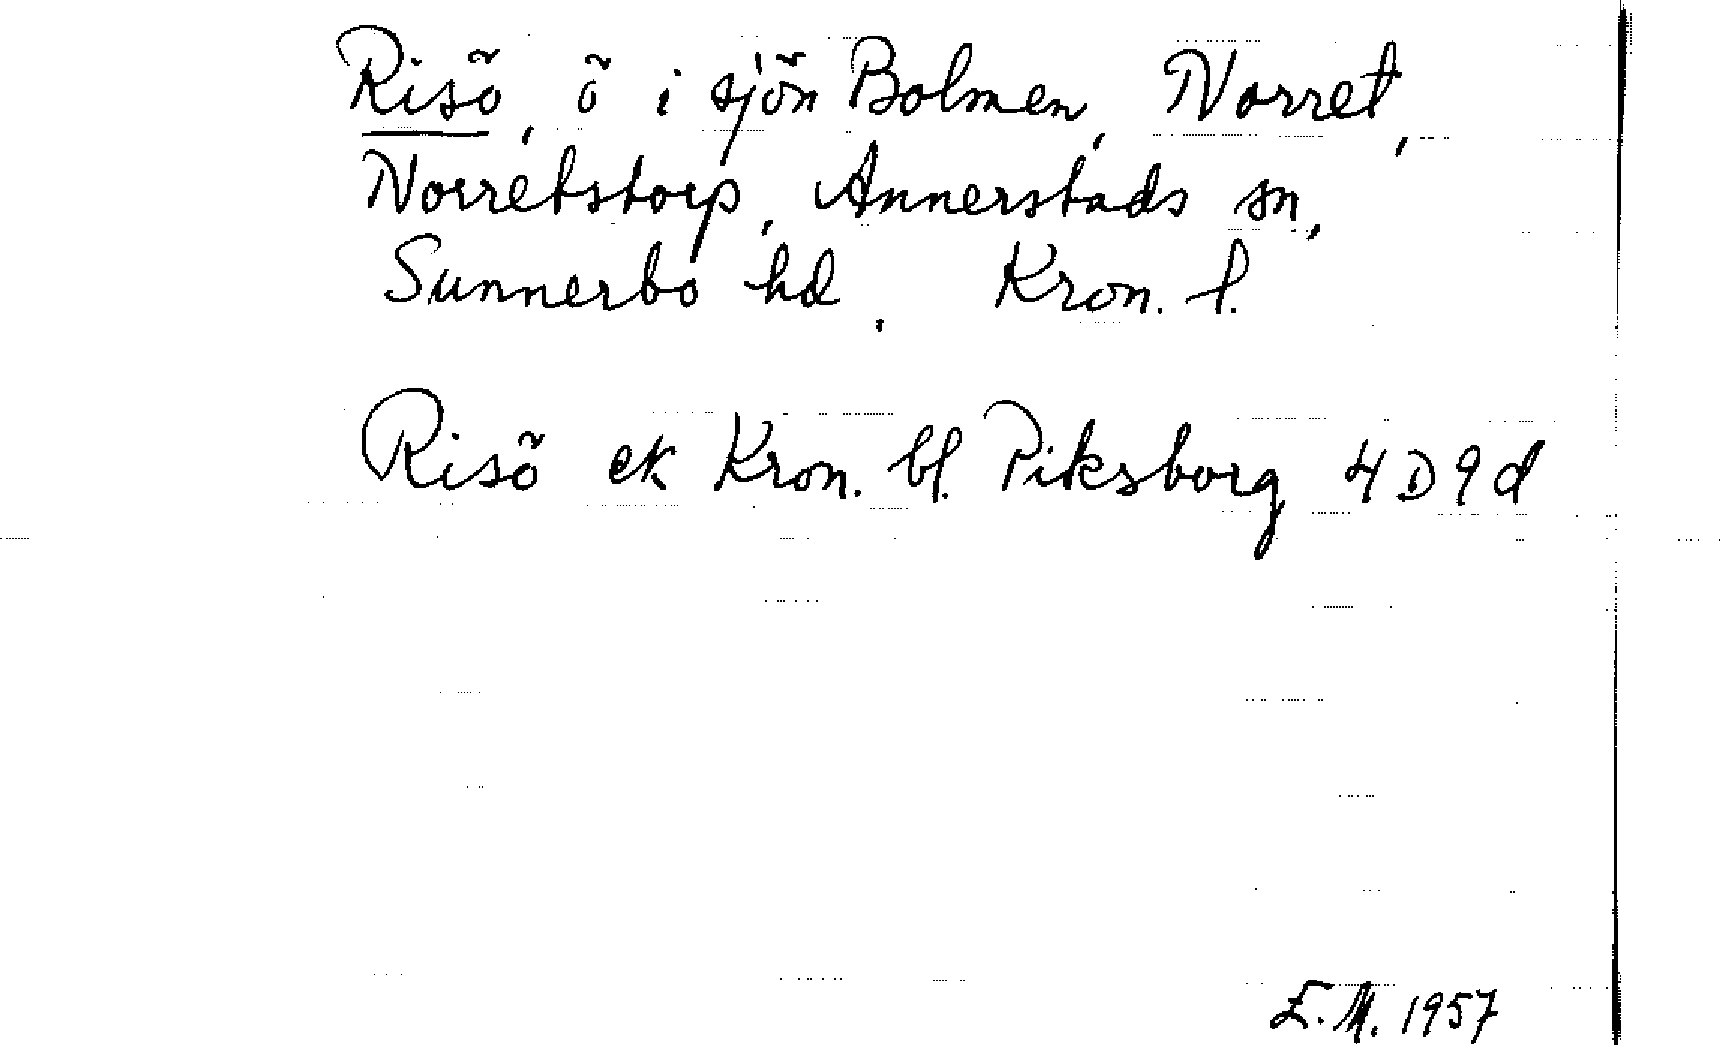 Risö, ö i sjön Bolmen, Norret,
Norretstorp, Annerstads sn,
Sunnerbo hd. Kron. l.
Risö ek Kron. bl. Piksborg 4D9d
E.M. 1957